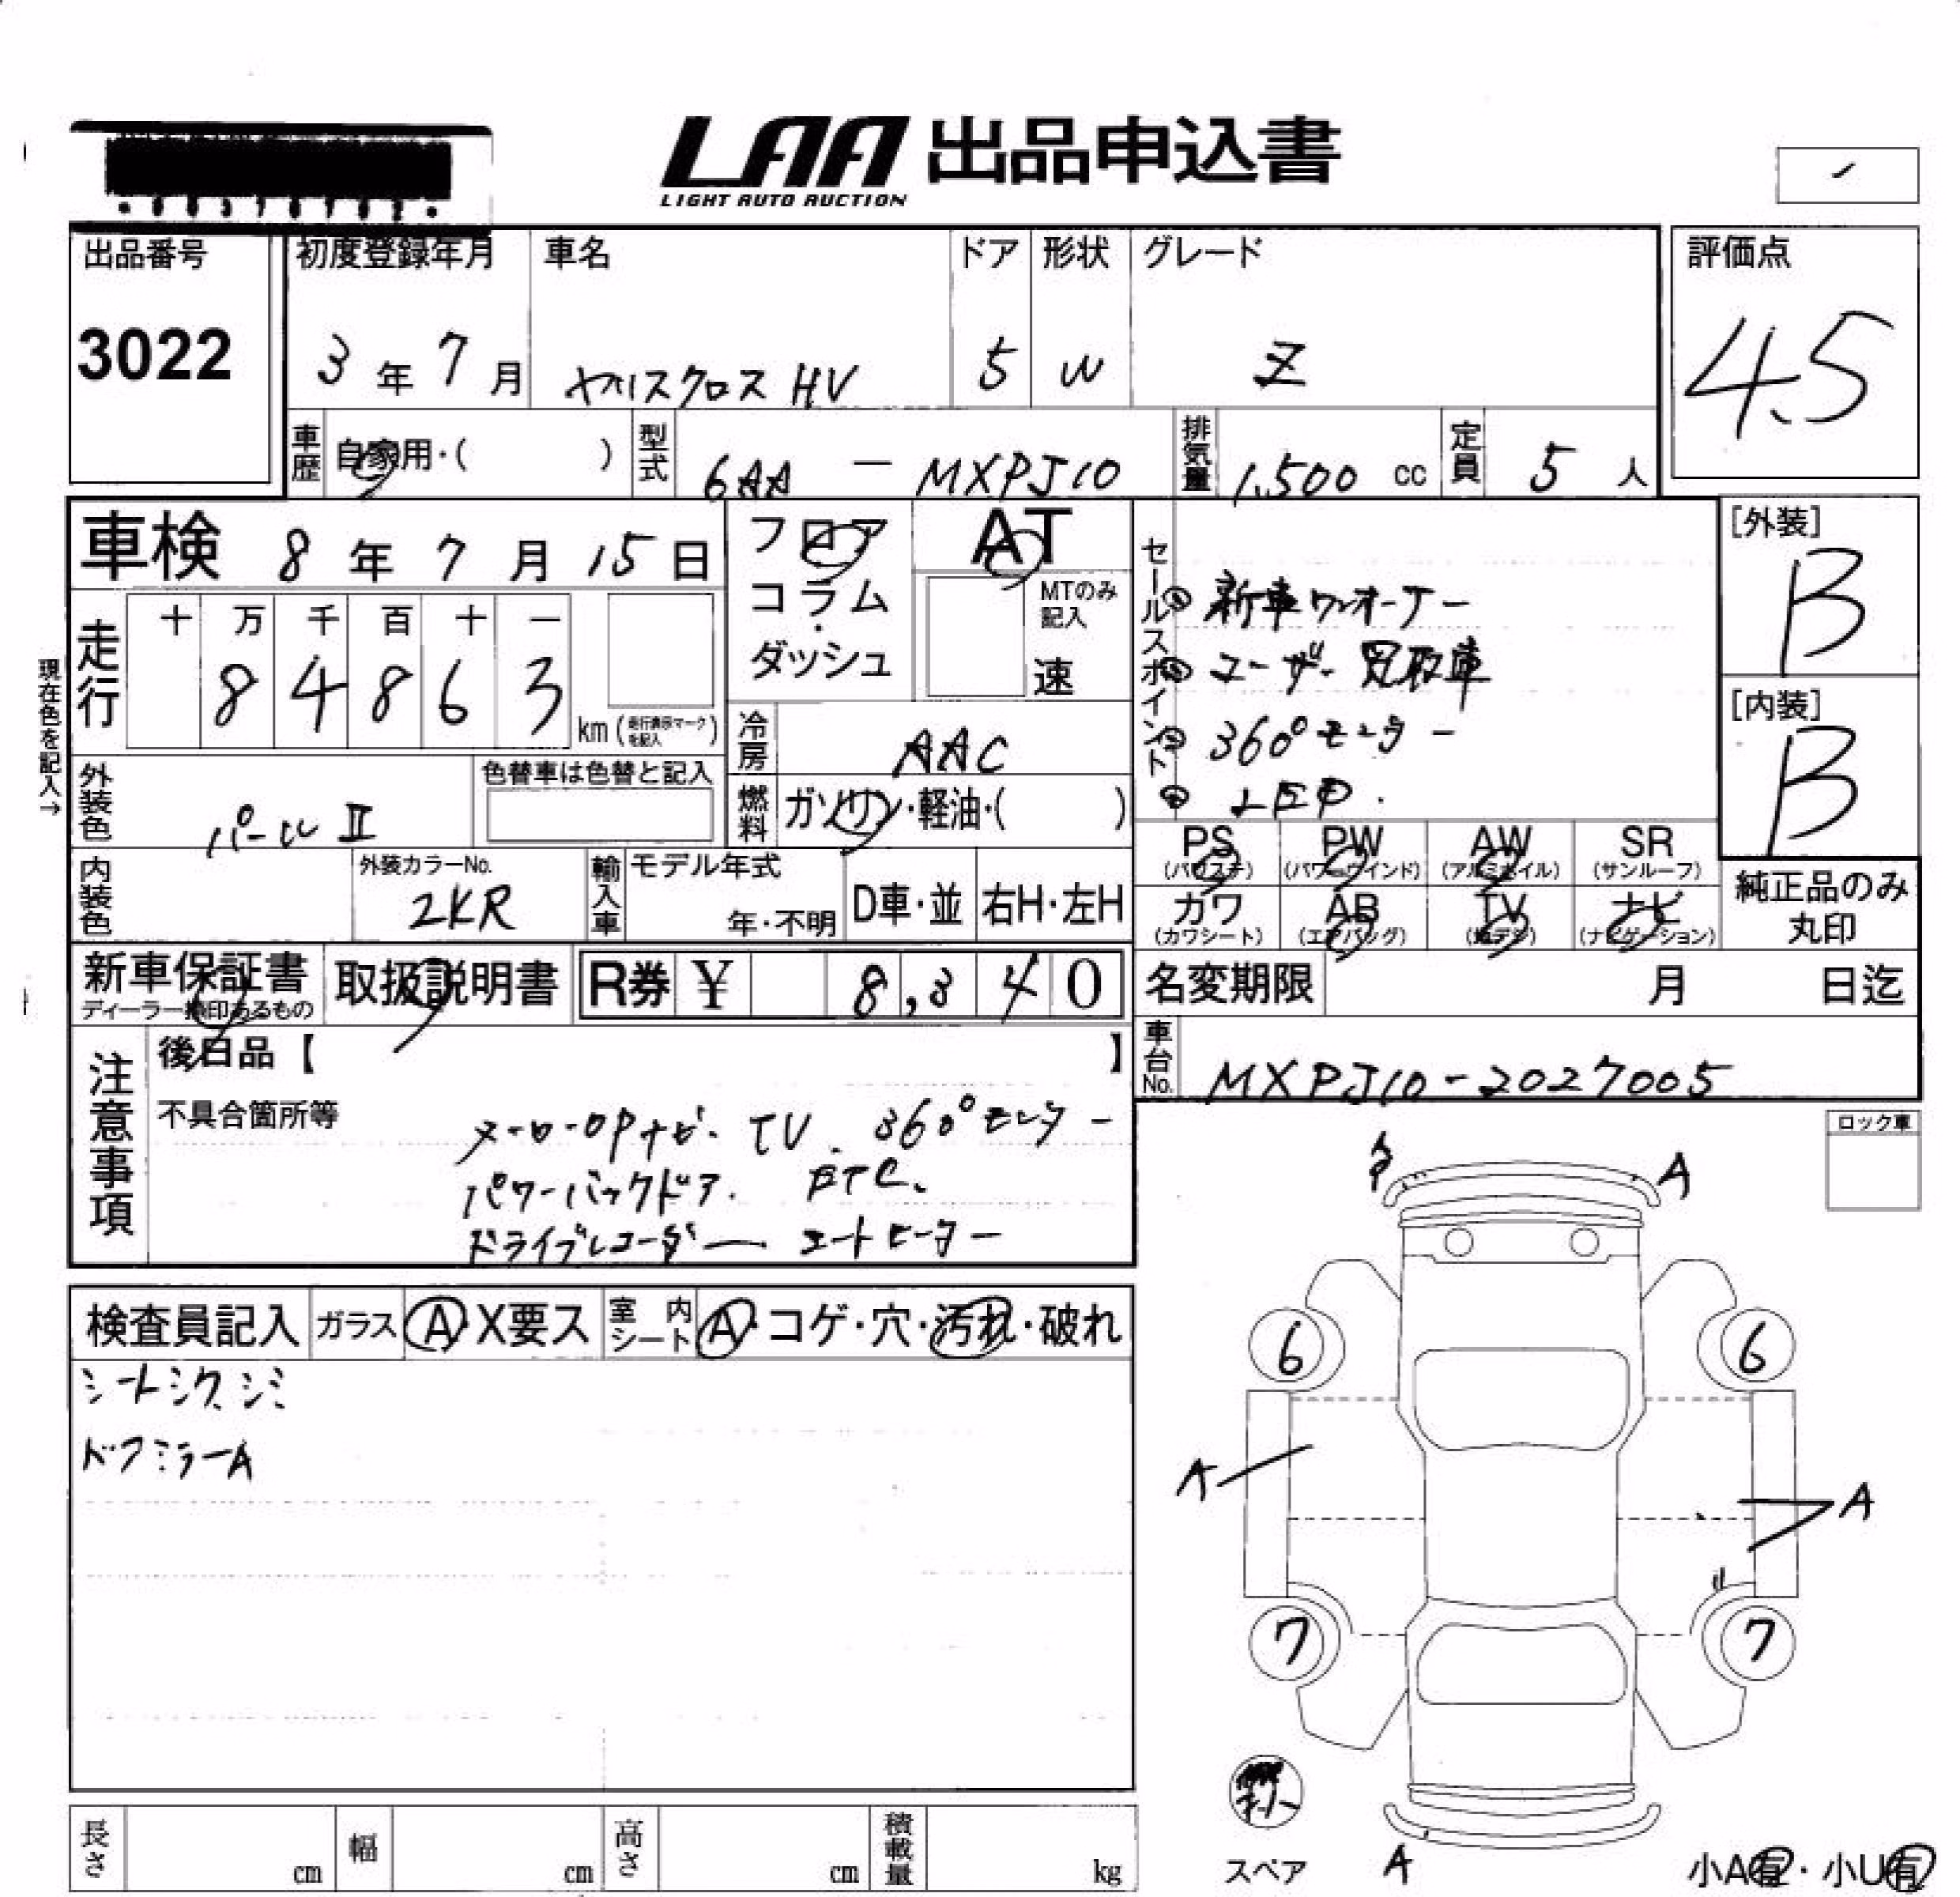 LAA 出品申込書
LIGHT AUTO AUCTION
出品番号 初度登録年月 車名 ドア 形状 グレード 評価点
3022 3年7月 ヤリスクロス HV 5 W Z 4.5
車歴 自家用・( ) 型式 6AA - MXPJ10 排気量 1,500 cc 定員 5 人
車検 8年7月15日
フロア AT
コラム・ダッシュ
MTのみ記入
速
セールスポイント
① 新車ワンオーナー
② ユーザー買取車
③ 360°モニター
④ LED.
[外装]
B
[内装]
B
現在色を記入→
走行 十 万 千 百 十 一
8 4 8 6 3 km (走行表示マークを記入)
冷房 AAC
外装色 パールⅡ 色替車は色替と記入
燃料 ガソリン・軽油・( )
内装色 外装カラーNo. 2KR
輸入車 モデル年式 年・不明 D車・並 右H・左H
PS (パワステ) PW (パワーウインド) AW (アルミホイル) SR (サンルーフ)
カワ (カワシート) AB (エアバッグ) TV (地デジ) ナビ (ナビゲーション)
純正品のみ丸印
新車保証書 取扱説明書 R券 ¥ 8,340
ディーラー捺印あるもの
名変期限 月 日迄
車台No. MXPJ10-2027005
注意事項
後日品【 】
不具合箇所等
メーカーOPナビ. TV. 360°モニター
パワーバックドア. ETC.
ドライブレコーダー シートヒーター
ロック車
検査員記入 ガラス A・X要ス 室内シート A・コゲ・穴・汚れ・破れ
シートシワ、シミ
ドアミラーA
A A
6 6
A A
7 7
スペア A 小A有・小U有
長さ cm 幅 cm 高さ cm 積載量 kg